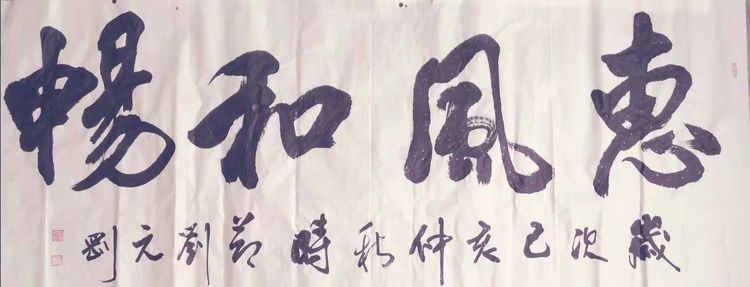 惠風和暢
歲次己亥仲秋時節劉元剛